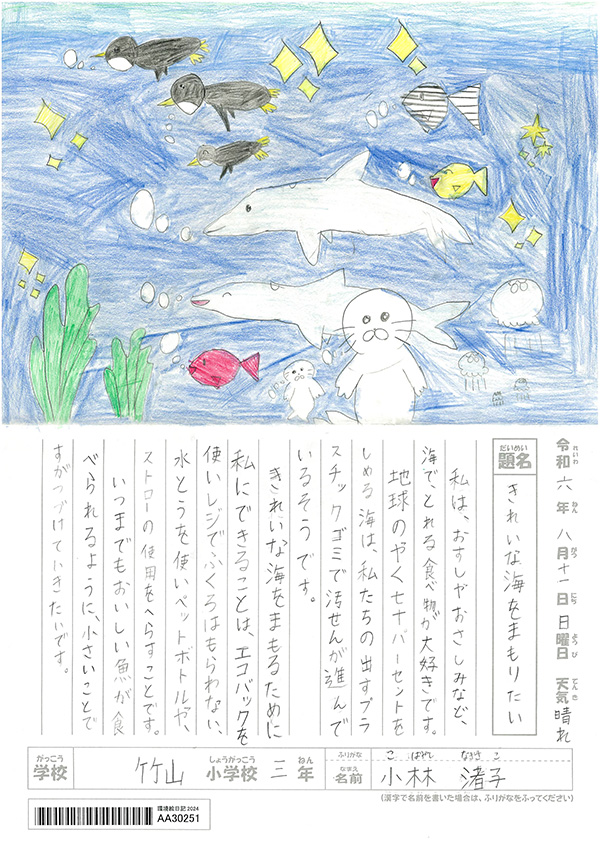 令和六年八月十一日日曜日 天気晴れ
れいわ ねん がつ にち ようび てんき
だいめい
題名
きれいな海をまもりたい
私は、おすしやおさしみなど、
海でとれる食べ物が大好きです。
地球のやく七十パーセントを
しめる海は、私たちの出すプラ
スチックゴミで汚せんが進んで
いるそうです。
きれいな海をまもるために
私にできることは、エコバックを
使いレジでふくろはもらわない、
水とうを使いペットボトルや、
ストローの使用をへらすことです。
いつまでもおいしい魚が食
べられるように、小さいことで
すがつづけていきたいです。
がっこう しょうがっこう ねん
学校 竹山 小学校 三 年
ふりがな こばやし なぎさこ
なまえ
名前 小林 渚子
(漢字で名前を書いた場合は、ふりがなをふってください)
環境絵日記2024
AA30251